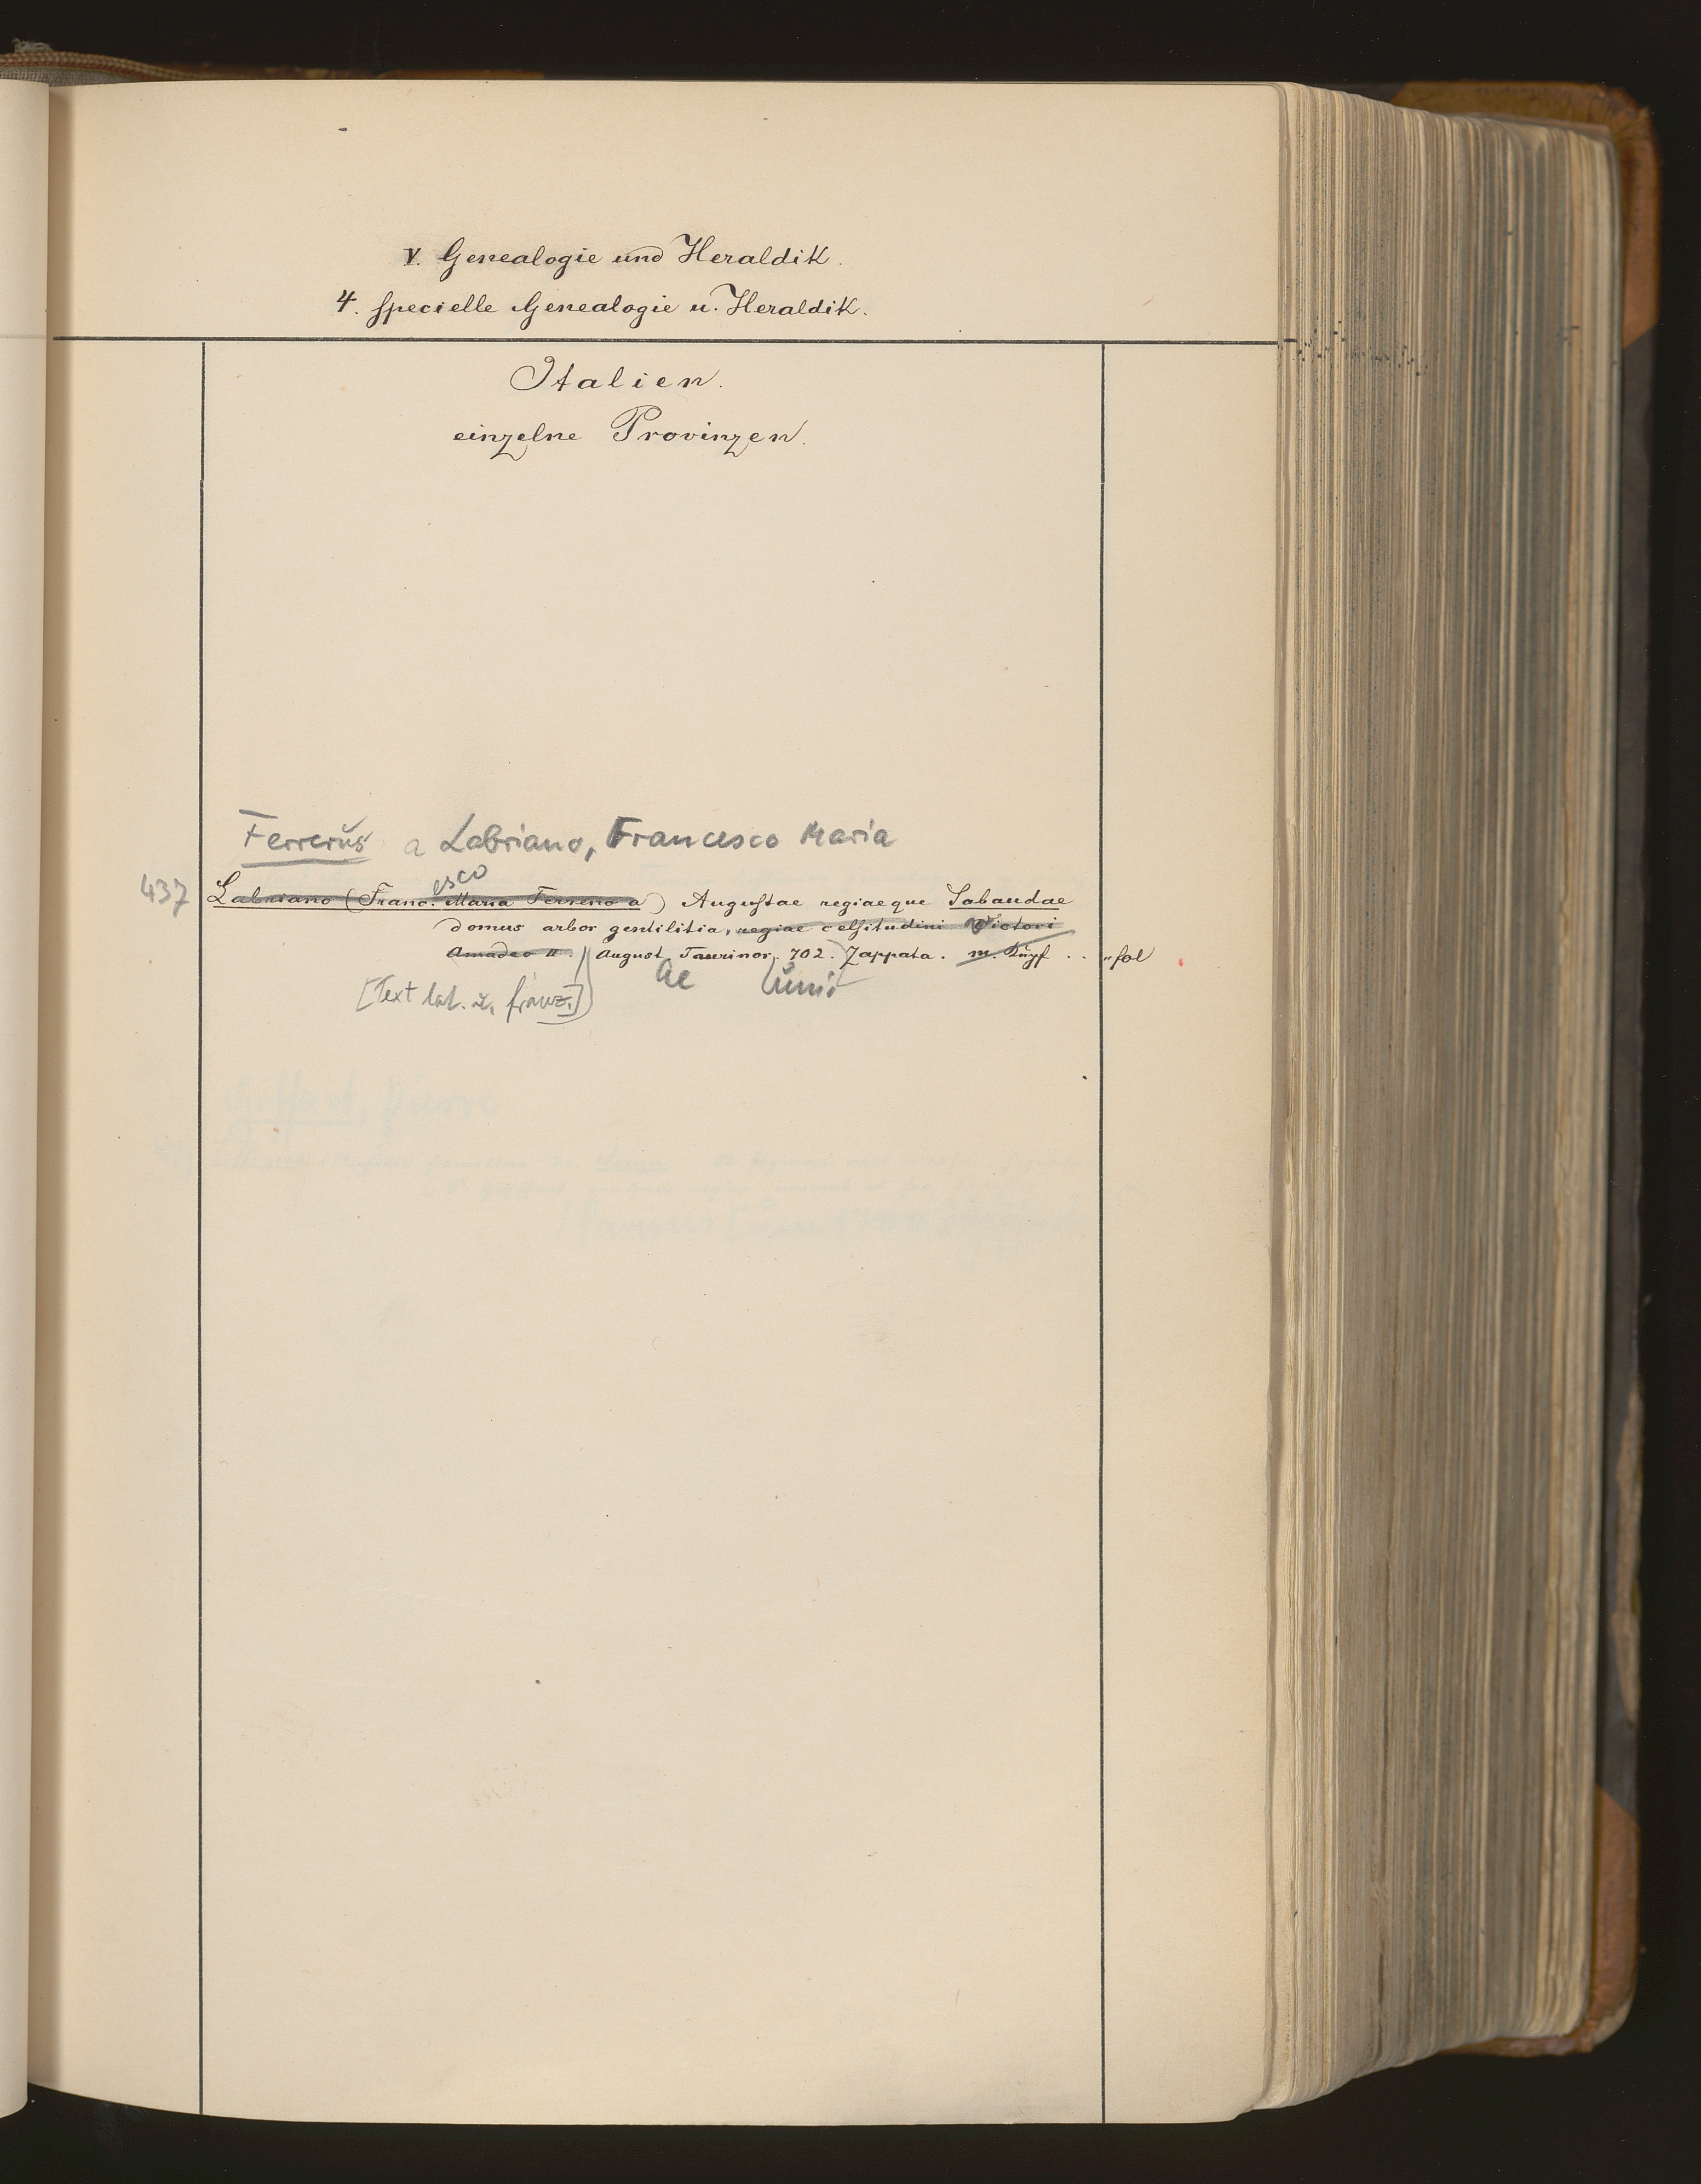 V. Genealogie und Heraldik.
4. specielle Genealogie u. Heraldik.
Italien.
einzelne Provinzen.
Ferrerus a Labriano, Francesco Maria
esco
437 Labriano (Franc. Maria Ferrero a) Augustae regiaeque Sabaudae
domus arbor gentilitia, regiae celsitudini Victori
Amadeo II. August. Taurinor. 702. Zappata. m. Kupf . . " fol
ae
[Text lat. u. franz.]